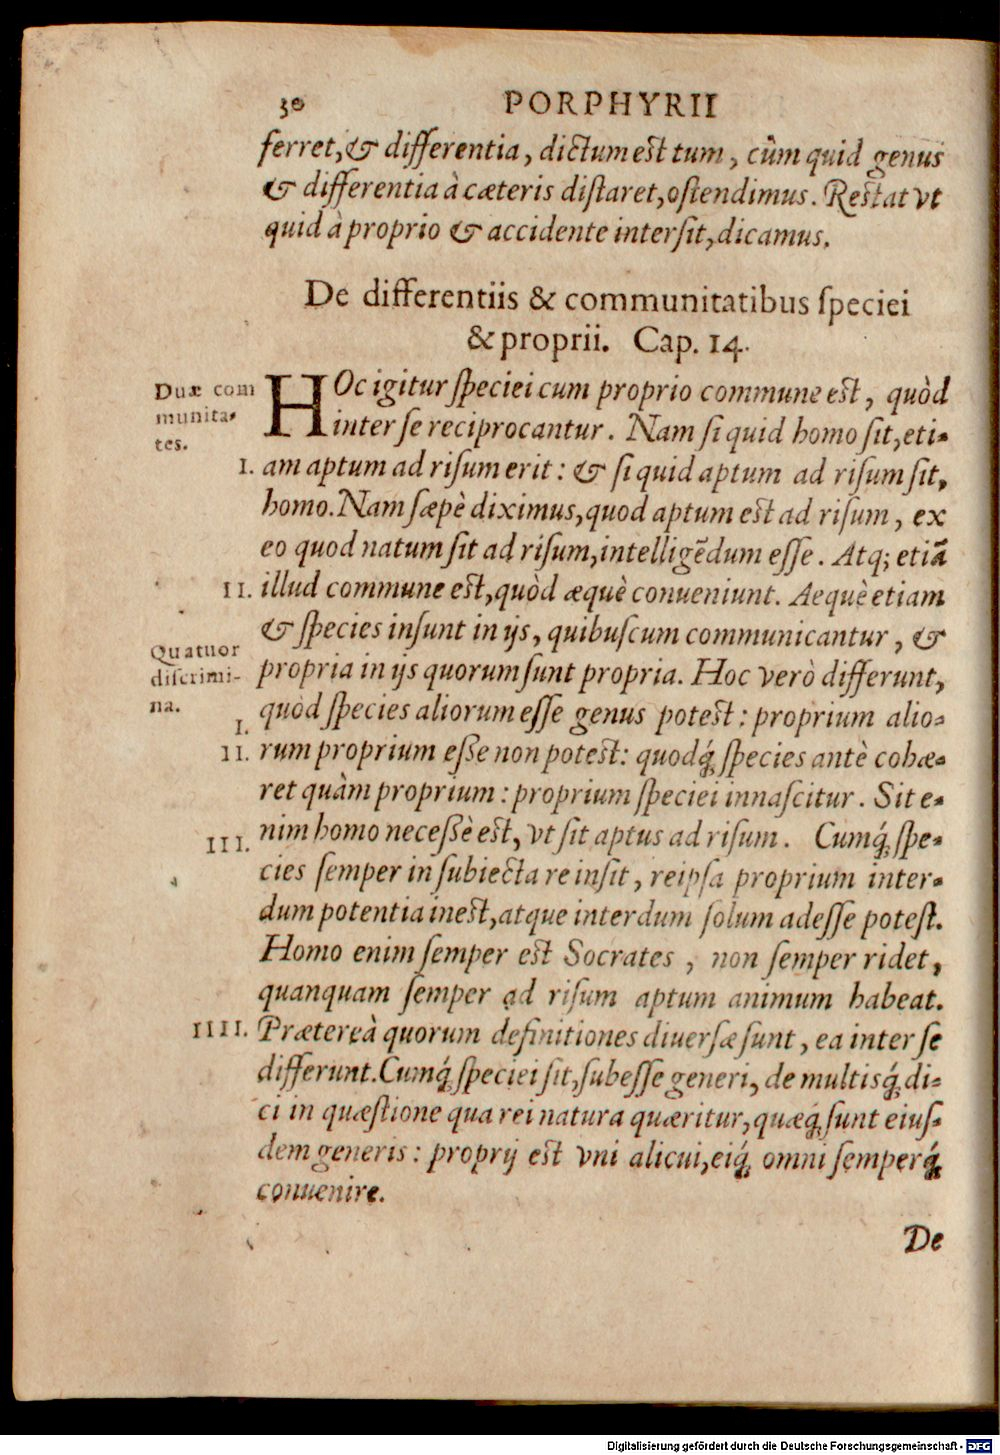 30 PORPHYRII
ferret, & differentia, dictum est tum, cùm quid genus
& differentia à cæteris distaret, ostendimus. Restat vt
quid à proprio & accidente intersit, dicamus.
De differentiis & communitatibus speciei
& proprii. Cap. 14.
Duæ com
munita-
tes.
HOc igitur speciei cum proprio commune est, quòd
inter se reciprocantur. Nam si quid homo sit, eti-
I. am aptum ad risum erit: & si quid aptum ad risum sit,
homo. Nam sæpè diximus, quod aptum est ad risum, ex
eo quod natum sit ad risum, intelligẽdum esse. Atq; etiã
II. illud commune est, quòd æquè conueniunt. Aequè etiam
& species insunt in ijs, quibuscum communicantur, &
Quatuor
discrimi-
na.
propria in ijs quorum sunt propria. Hoc verò differunt,
I. quòd species aliorum esse genus potest: proprium alio-
II. rum proprium esse non potest: quodq́; species antè cohæ-
ret quàm proprium: proprium speciei innascitur. Sit e-
III. nim homo necesse est, vt sit aptus ad risum. Cumq́; spe-
cies semper in subiecta re insit, reipsa proprium inter-
dum potentia inest, atque interdum solum adesse potest.
Homo enim semper est Socrates, non semper ridet,
quanquam semper ad risum aptum animum habeat.
IIII. Prætereà quorum definitiones diuersæ sunt, ea inter se
differunt. Cumq́; speciei sit, subesse generi, de multisq́; di-
ci in quæstione qua rei natura quæritur, quæq́; sunt eius-
dem generis: proprij est vni alicui, eiq́; omni semperq́;
conuenire.
De
Digitalisierung gefördert durch die Deutsche Forschungsgemeinschaft - DFG